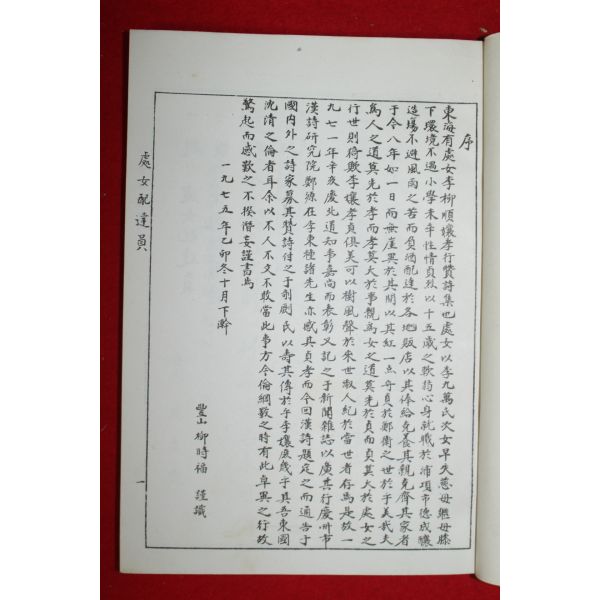 序
東海有處女李柳順孃孝行贊詩集也處女以李九萬氏次女早失慈母繼母膝
下環境不遇小學未卒性情貞烈以十五歲之軟弱心身就職於浦項市德成釀
造場不避風雨之苦而負酒配達於各地販店以其俸給克養其親克齊其家者
于今八年如一日而無崖異於其間以其紅一点守貞於鄭衛之世於乎美哉夫
爲人之道莫先於孝而孝莫大於事親爲女之道莫先於貞而貞莫大於處女之
行世則猗歟李孃孝貞俱美可以樹風聲於來世叔人紀於當世者存焉是故一
九七一年辛亥慶北道知事嘉尚而表彰又記之于新聞雜誌以廣其行慶州市
漢詩研究院鄭鎔在李東種諸先生亦感其貞孝而今回漢詩題定之而通告于
國內外之詩家募其贊詩付之于剞劂氏以壽其傳於乎李孃庶幾乎其吾東國
沈清之倫者耳余以不人不文不敢當此事方今倫綱斁之時有此卓異之行故
驚起而感歎之不揆潛妄謹書焉
一九七五年乙卯冬十月下澣
豐山 柳時福 謹識
處女配達員
一